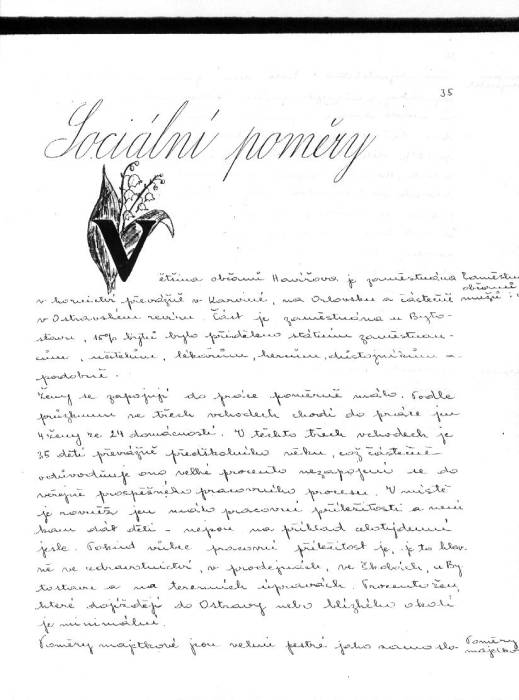 35
Sociální poměry
Většina občanů Havířova je zaměstnána
v hornictví převážně v Karviné, na Orlovsku a částečně
v Ostravském revíru. Část je zaměstnána u Byto-
stavu, 15% bytů bylo přiděleno státním zaměstnan-
cům, učitelům, lékařům, hercům, důstojníkům a
podobně.
Ženy se zapojují do práce poměrně málo. Podle
průzkumu ve třech vchodech chodí do práce jen
4 ženy ze 24 domácností. V těchto třech vchodech je
35 dětí převážně předškolního věku, což částečně
odůvodňuje ono velké procento nezapojení se do
veřejně prospěšného pracovního procesu. V místě
je rovněž jen málo pracovní příležitosti a není
kam dát děti - nejsou na příklad celotýdenní
jesle. Pokud vůbec pracovní příležitost je, je to hlav-
ně ve zdravotnictví, v prodejnách, ve školách, u By-
tostavu a na terenních úpravách. Procento žen,
které dojíždějí do Ostravy nebo blízkého okolí
je minimální.
Poměry majetkové jsou velmi pestré jako samo slo-
občanů
mužů
Poměry